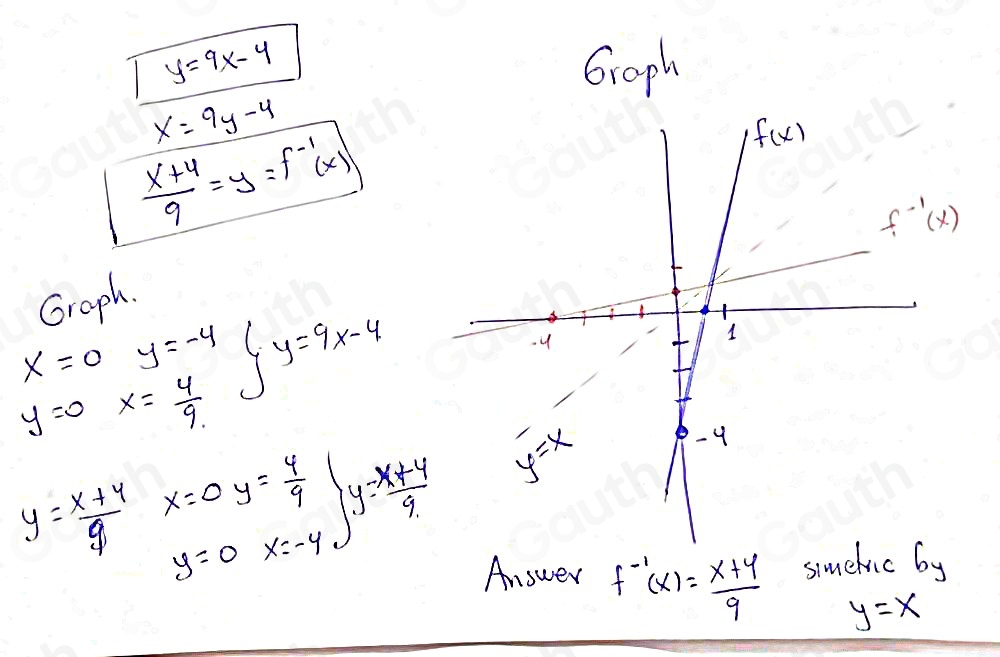 y=9x-4
x=9y-4
x+4/9 = y = f⁻¹(x)
Graph.
x=0 y=-4 } y=9x-4
y=0 x=4/9.
y=x+4/9 x=0 y=4/9 } y=x+4/9.
y=0 x=-4
Graph
f(x)
f⁻¹(x)
-4
1
-4
y=x
Answer f⁻¹(x)=x+4/9 simetric by
y=x
Gauth